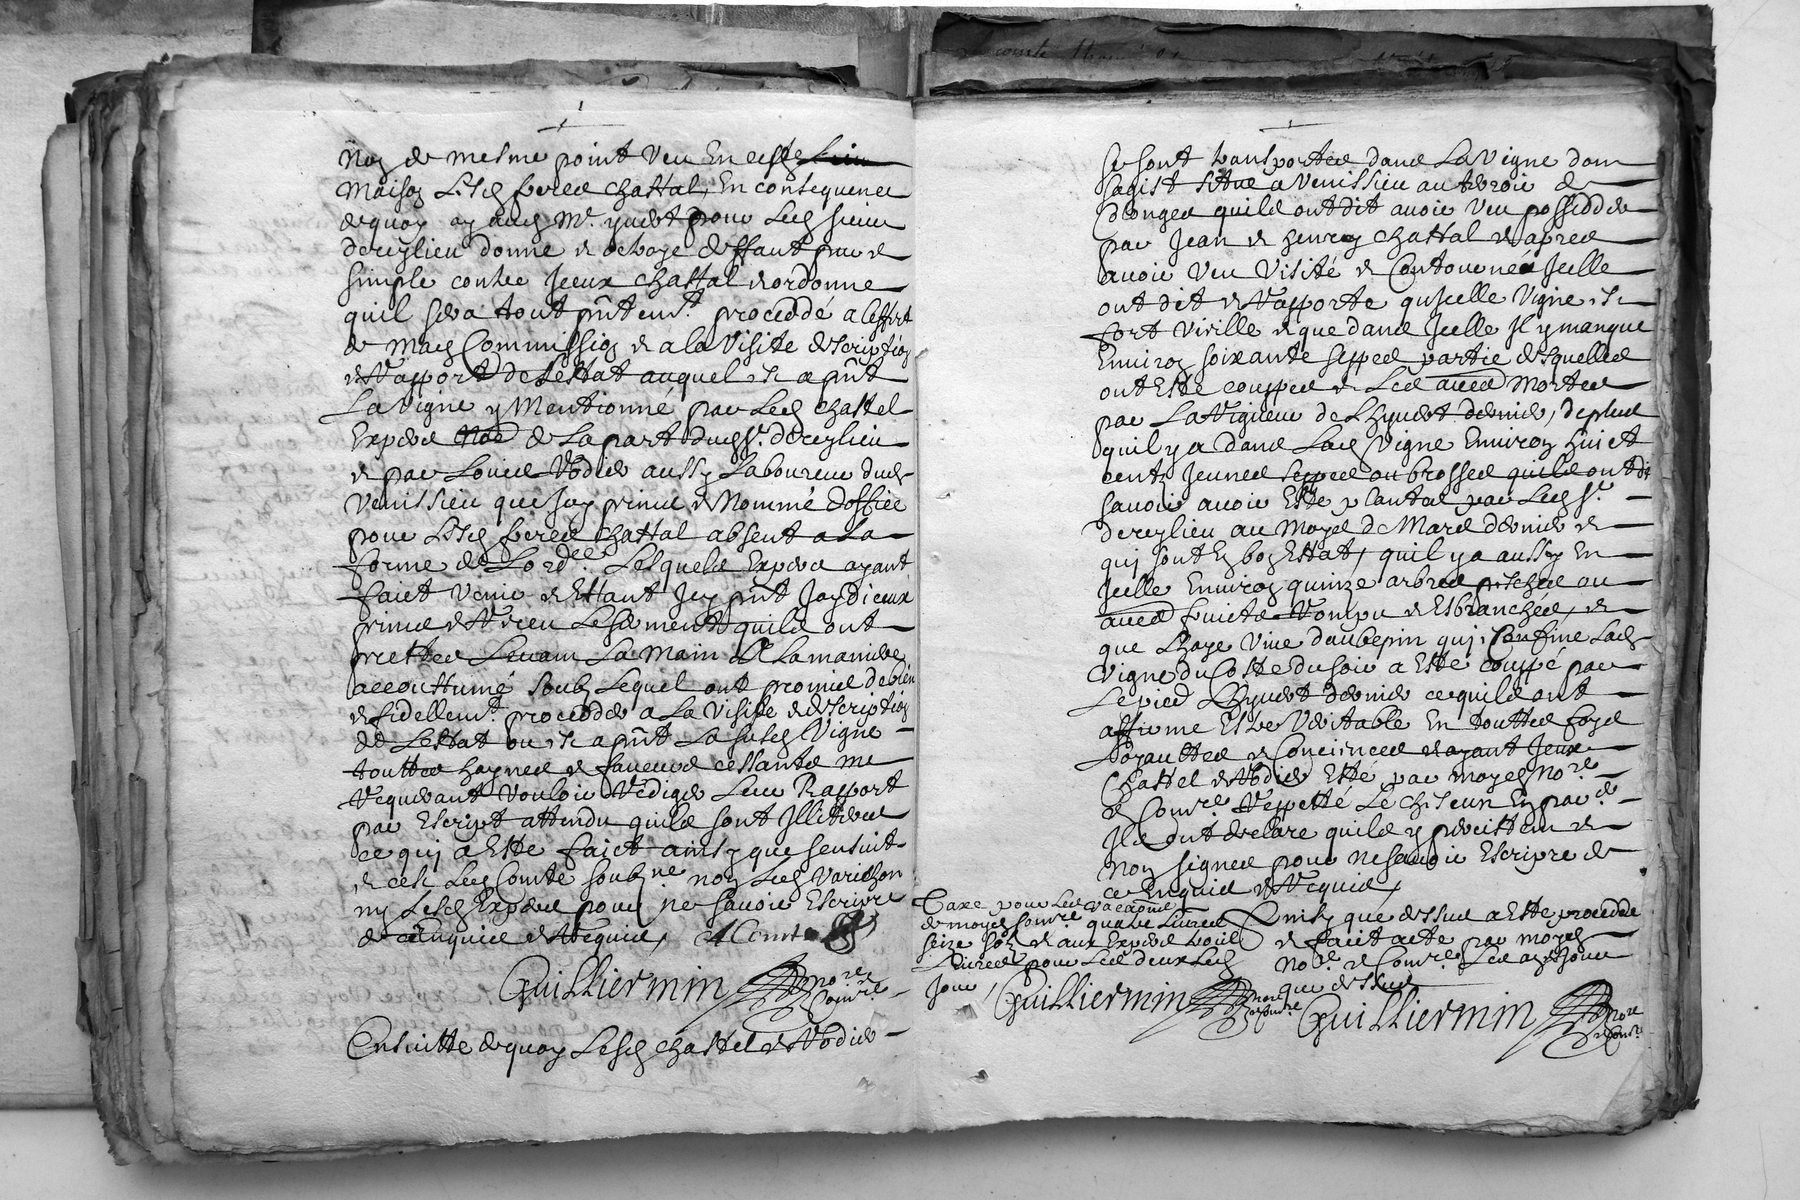 Noy de mesme point veu En ceste
Maison Lesd freres chastal, En consequence
de quoy ay aud Mr. ynard pour Led sieur
dereylieu donné et octroyé deffaut pur et
simple contre Jceux chastal et ordonné
quil sera tout pnt emt. proceddé a leffect
de mad Commission et a la Visite description
et Rapport de Lestat auquel est a pnt
La Vigne y Mentionné par Led chastel
Expert de La part dud sr. dereylieu
et par Louis Rodier aussy Laboureur dud
Venissieu que Jay prins et Nommé doffice
pour Lesd freres chastal absent a La
forme de Lordce. Lesquels Expers ayant
faict venir et Estant Jcy pnt Jay dJceux
prins et Receu Le serment quils ont
prettes Levam La Main A La maniere
accouttumé soubz Lequel ont promis de bien
et fidellemt. procedder a La Visite et description
de Lestat ou est a pnt La susd Vigne
touttes haynes et faveurs cessants me
Requerant vouloir Rediger Leur Rapport
par Escript attendu quils sont Jllitereu
ce qui a Esté faict ainsy que sensuit
et cest Led Comte soubzne non Led Varichon
ny Lesd Expers pour ne scavoir Escrire
de ce Enquis et Requis, A Comte
Guilliermin nore
et Comre.
Ensuitte de quoy Lesd chastel et Rodier
se sont transportes dans La vigne dom
sagist située a Venissieu au terroir de
Longes quils ont dit avoir veu possedder
par Jean et henry chastal et apres
avoir Veu Visité et Contournée Jcelle
ont dit et Rapporté quJcelle vigne est
fort vieille et que dans Jcelle Jl y manque
Environ soixante seppes partie desquelles
ont Esté couppes et Les aues Mortes
par La Rigueur de Lhyvert dernier, de plus
quil y a dans Lad Vigne Environ huict
cent Jeunes seppes ou brosses quils ont dit
scavoir avoir Esté plantal par Led sr.
dereylieu au Moys de Mars dernier et
qui sont En bon Estat, quil y a aussy En
Jcelle Environ quinze arbres peschés ou
aues fruicts Rompu et Esbranchés, et
que Lhaye vive daubepin qui Confine Lad
vigne du Costé du soir a Esté couppé par
Le pied Lhyvert dernier ce quils ont
affirmé Estre Veritable En touttes foys
Loyauttes et Consiences et ayant Jeux
Chastel et Rodier Esté par moyd Nore
et Comre. Reppetté Le chascun En parer.
Jls ont declaré quils y percistem et
Non signes pour ne scavoir Escripre de
ce Enquis et Requis,
Taxe pour Led vacaõne
de moyd Comre quatre Livres
seize solz et aux Expers trois
Livres pour Les deux Led
Jour,
Guilliermin nore
et Comre
Ainsy que dessus a Esté proceddé
et faict acte par moyd
Nore. et Comre. Les an et Jour
que dessus
Guilliermin nore
et Comre.